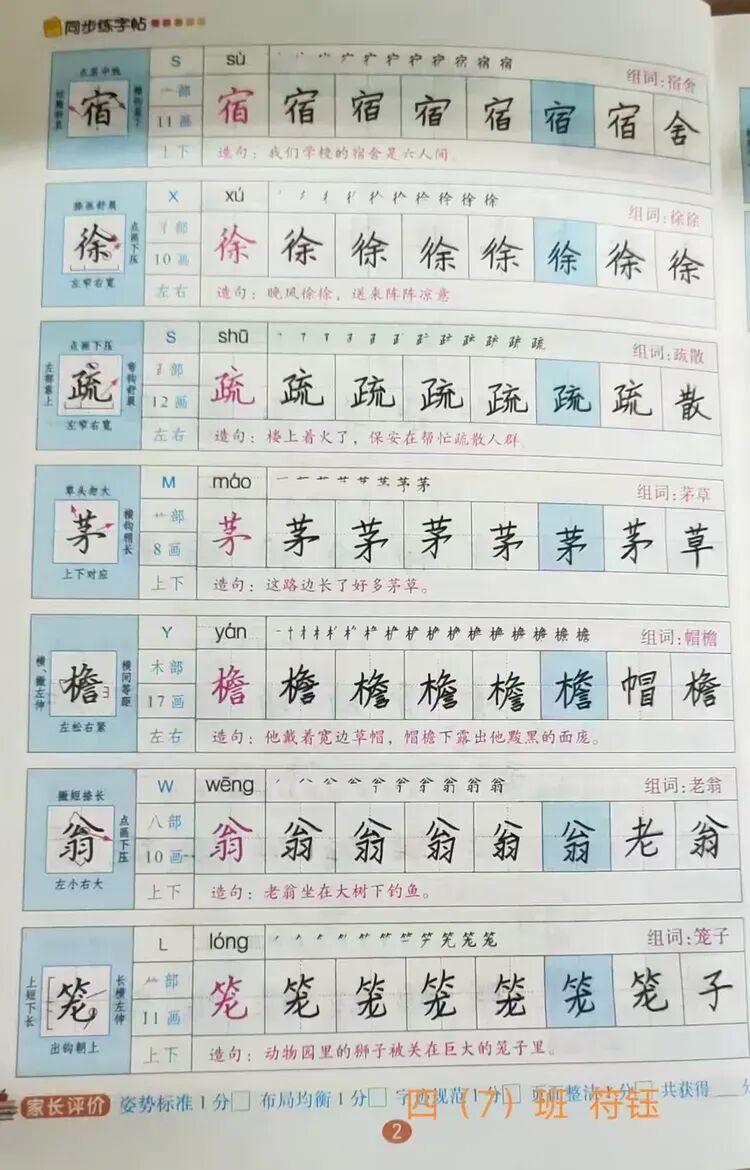 同步练字帖
S sù 组词:宿舍
点居中线
宿 宀部 宿 宿 宿 宿 宿 宿 宿 舍
11画
上下 造句：我们学校的宿舍是六人间。
X xú 组词:徐徐
撇画舒展
徐 点画下压 彳部 徐 徐 徐 徐 徐 徐 徐 徐
10画
左窄右宽 左右 造句：晚风徐徐，送来阵阵凉意
S shū 组词:疏散
点画下压
左部靠上 疏 弯钩舒展 部 疏 疏 疏 疏 疏 疏 疏 散
12画
左窄右宽 左右 造句：楼上着火了，保安在帮忙疏散人群。
M máo 组词:茅草
草头勿大
茅 横钩稍长 艹部 茅 茅 茅 茅 茅 茅 茅 草
8画
上下对应 上下 造句：这路边长了好多茅草。
Y yán 组词:帽檐
横、撇左伸 檐 横间等距 木部 檐 檐 檐 檐 檐 檐 帽 檐
17画
左松右紧 左右 造句：他戴着宽边草帽，帽檐下露出他黢黑的面庞。
W wēng 组词:老翁
撇短捺长
翁 点画下压 八部 翁 翁 翁 翁 翁 翁 老 翁
10画
左小右大 上下 造句：老翁坐在大树下钓鱼。
L lóng 组词:笼子
上短下长 笼 长横左伸 ⺮部 笼 笼 笼 笼 笼 笼 笼 子
11画
出钩朝上 上下 造句：动物园里的狮子被关在巨大的笼子里。
家长评价 姿势标准1分□ 布局均衡1分□ 规范1分□ 页面整洁1分□ 共获得 分
四（7）班 符钰
2